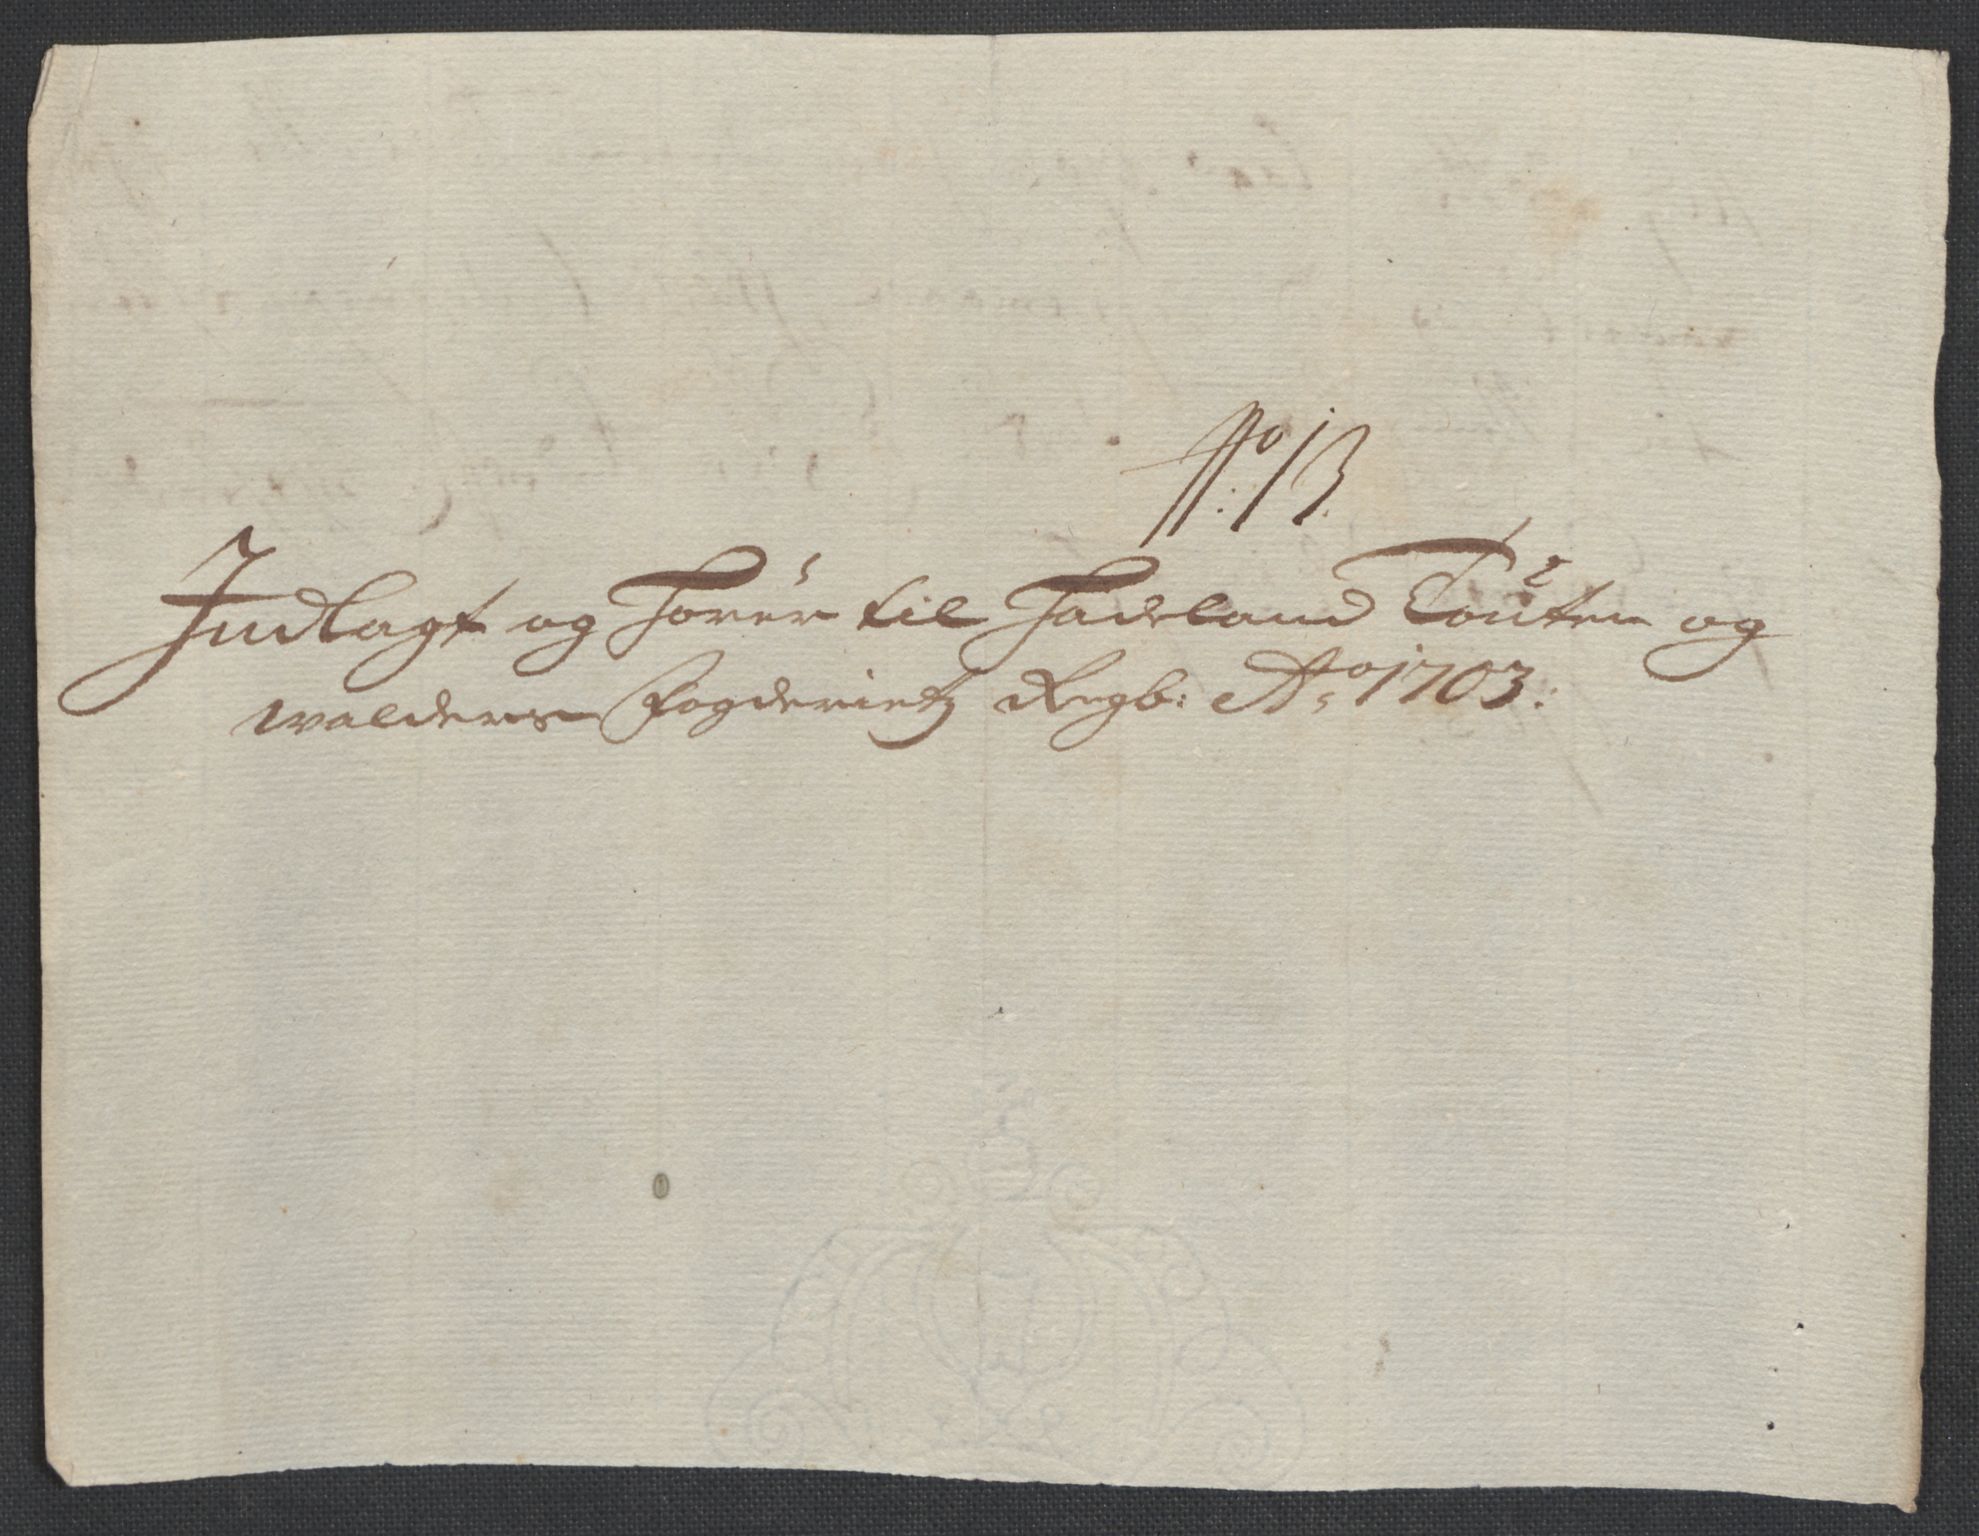 No: 13.
Indlagt og hører til Hadeland Toten og
Walders Fogderietz Regb: Ao 1703: